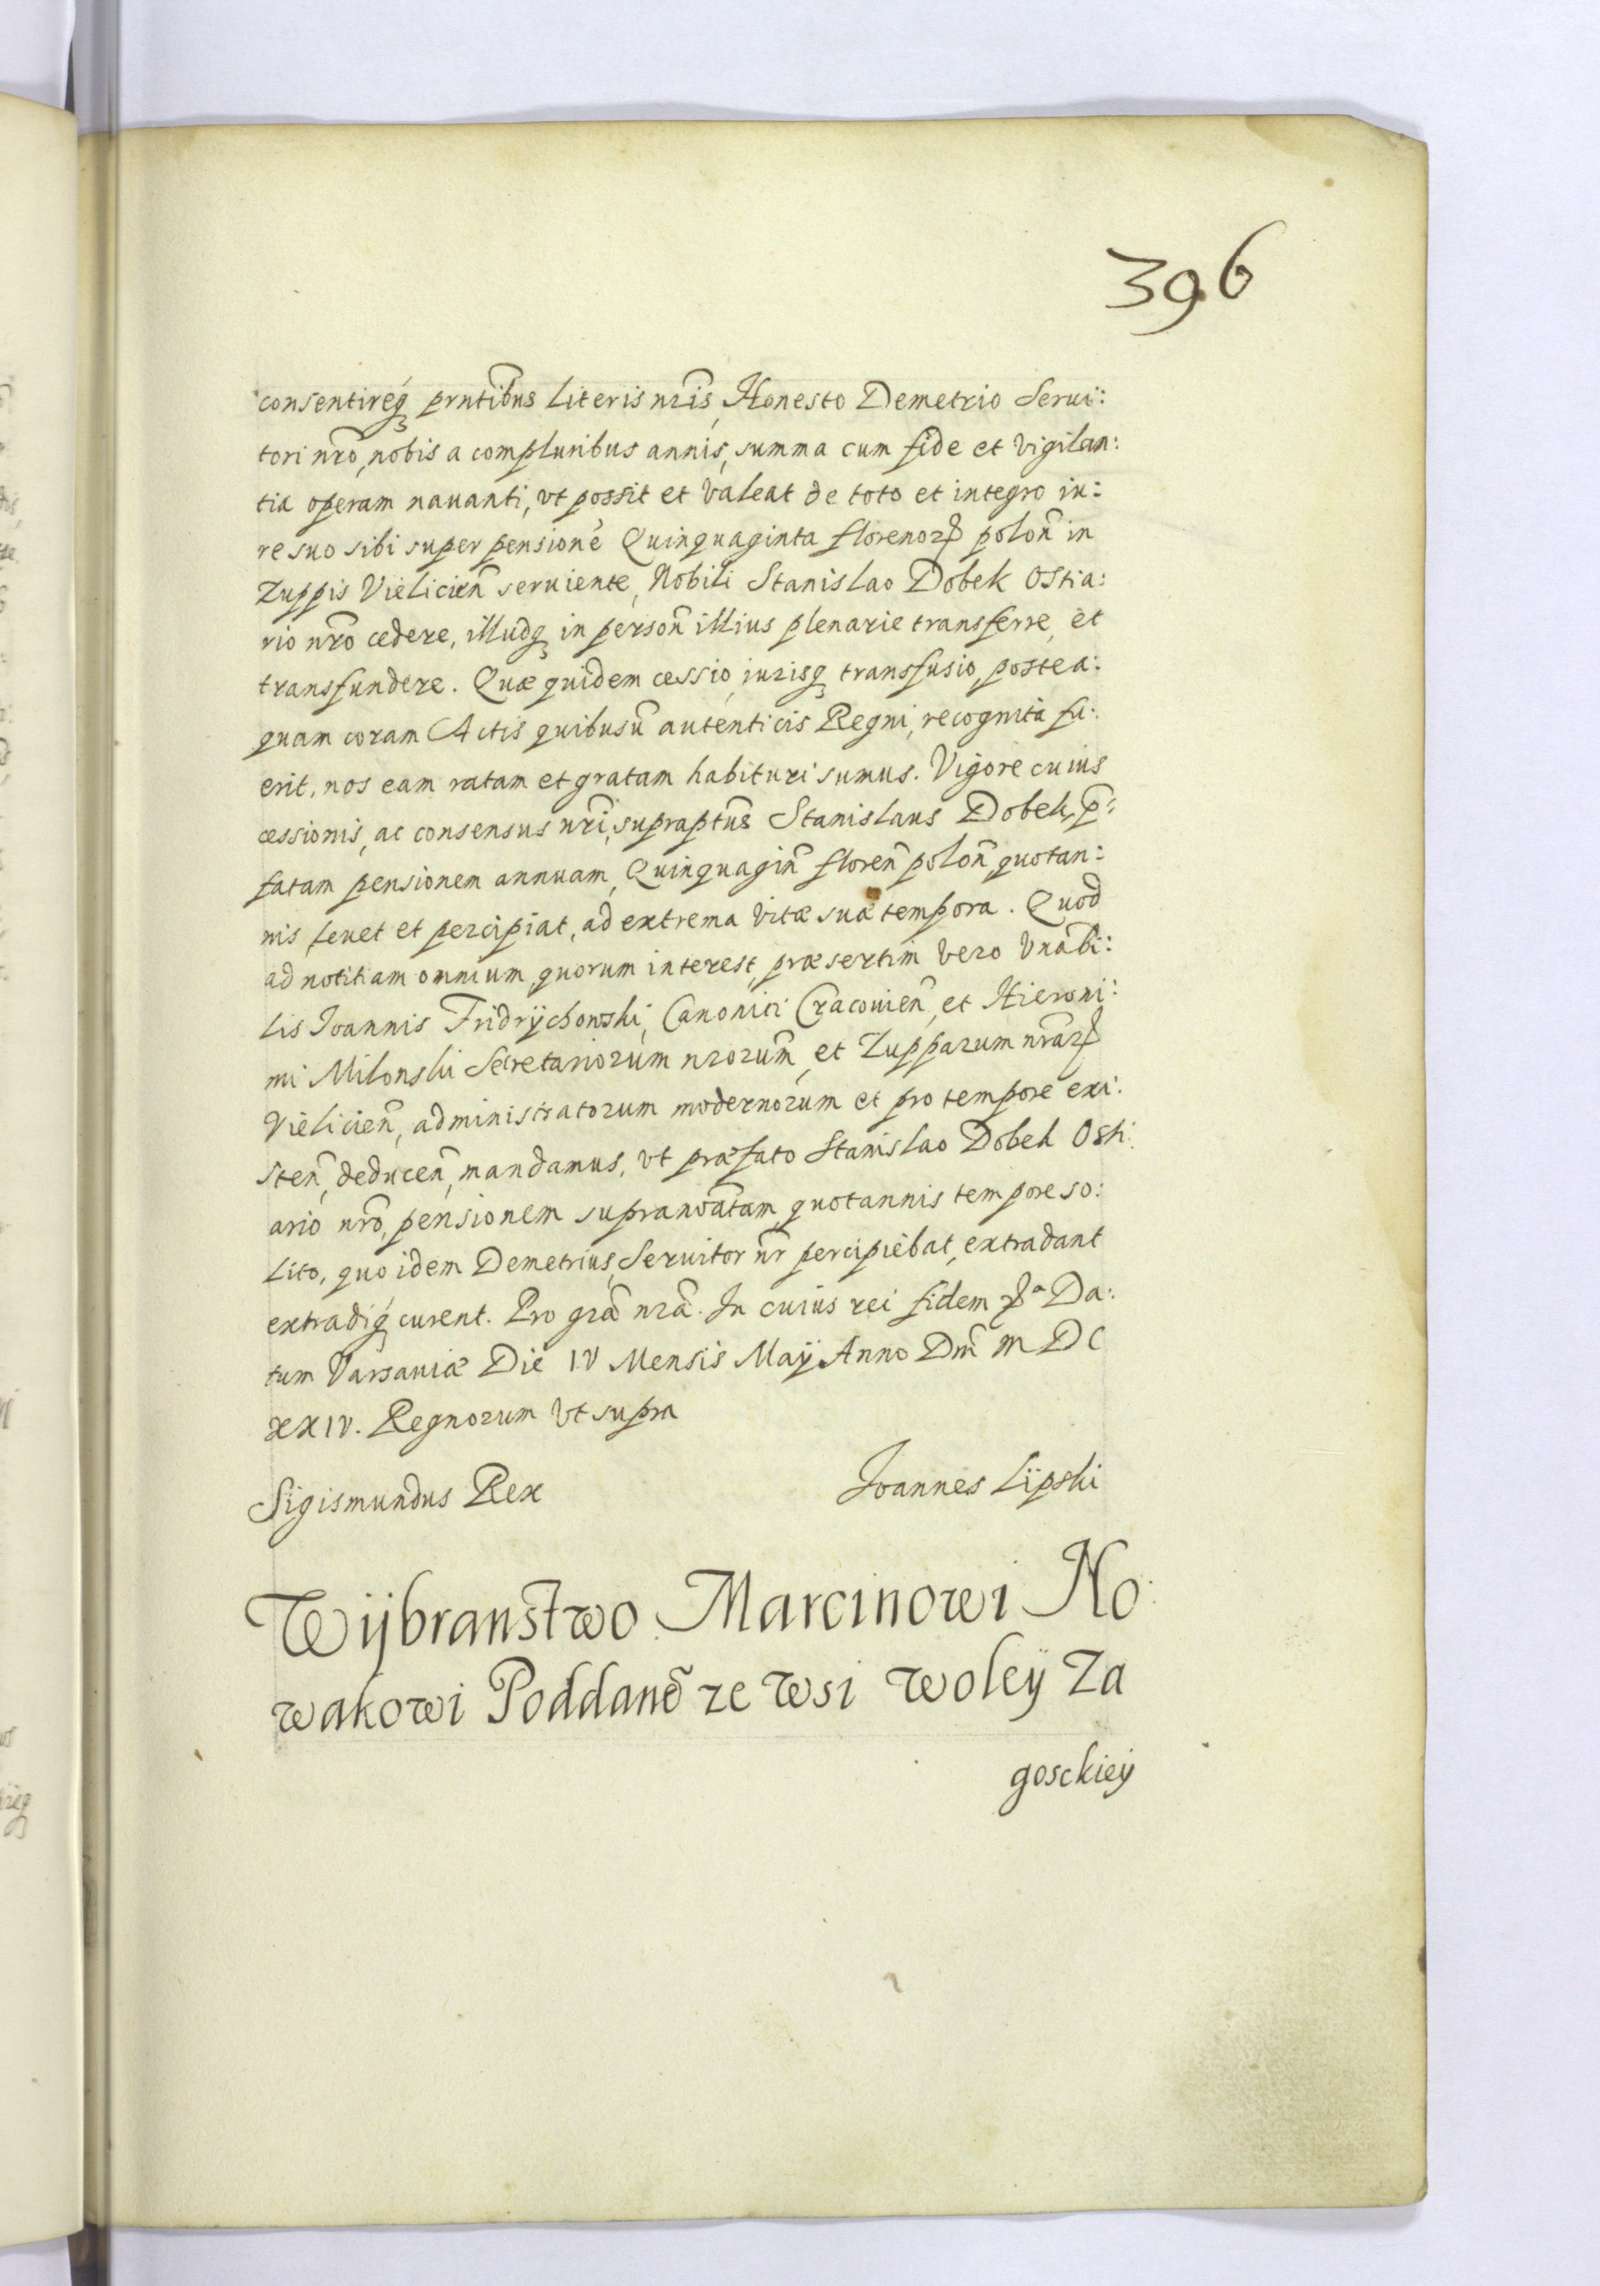 396
consentireq́ꝫ prntĩbus Literis nr̃is, Honesto Demetrio Serui:
tori nr̃o, nobis a compluribus annis, summa cum fide et vigilan:
tia operam nauanti, vt possit et valeat de toto et integro iu:
re suo sibi super pensionẽ Quinquaginta florenorꝝ polon̄ in
Zuppis Vielicien̄ seruiente, Nobili Stanislao Dobek Ostia:
rio nr̃o cedere, illudqꝫ in person̄ illius plenarie transferre, et
transfundere. Quæ quidem cessio, iurisqꝫ transfusio, postea:
quam coram Actis quibusũ autenticis Regni, recognita fu:
erit, nos eam ratam et gratam habituri sumus. Vigore cuius
cessionis, ac consensus nr̃i, supraptũs Stanislaus Dobek, p̃:
fatam pensionem annuam, Quinquagin̄ floren̄ polon̄, quotan:
nis leuet et percipiat, ad extrema vitæ suæ tempora. Quod
ad notitiam omnium, quorum interest, præsertim vero Vnãbi:
lis Joannis Fridrÿchowski, Canonici Cracouien̄, et Hieroni:
mi Milonski Secretariorum nrorum̃, et Zupparum nrãrꝝ
Vielicien̄, administratorum modernorum et pro tempore exi:
sten̄, deducen̄, mandamus, vt præfato Stanislao Dobek Osti:
ario nr̃o, pensionem supranoãtam, quotannis tempore so:
lito, quo idem Demetrius, Seruitor nr̃ percipiebat, extradant
extradiq́ꝫ curent. Pro grã nrã. In cuius rei fidem ꝝa Da:
tum Varsauiæ Die IV Mensis Maÿ Anno Dn̄i M DC
XXIV. Regnorum vt supra
Sigismundus Rex Joannes Lipski
Wÿbranstwo Marcinowi No:
wakowi Poddanõ ze wsi woleÿ Za
gosckieÿ